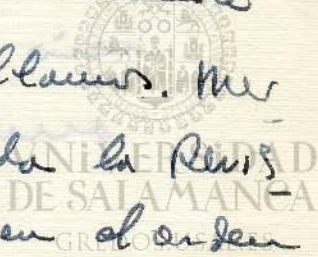 llamos. Me
da la Revis-
en el orden
UNIVERSIDAD
DE SALAMANCA
GREDOS.USAL.ES